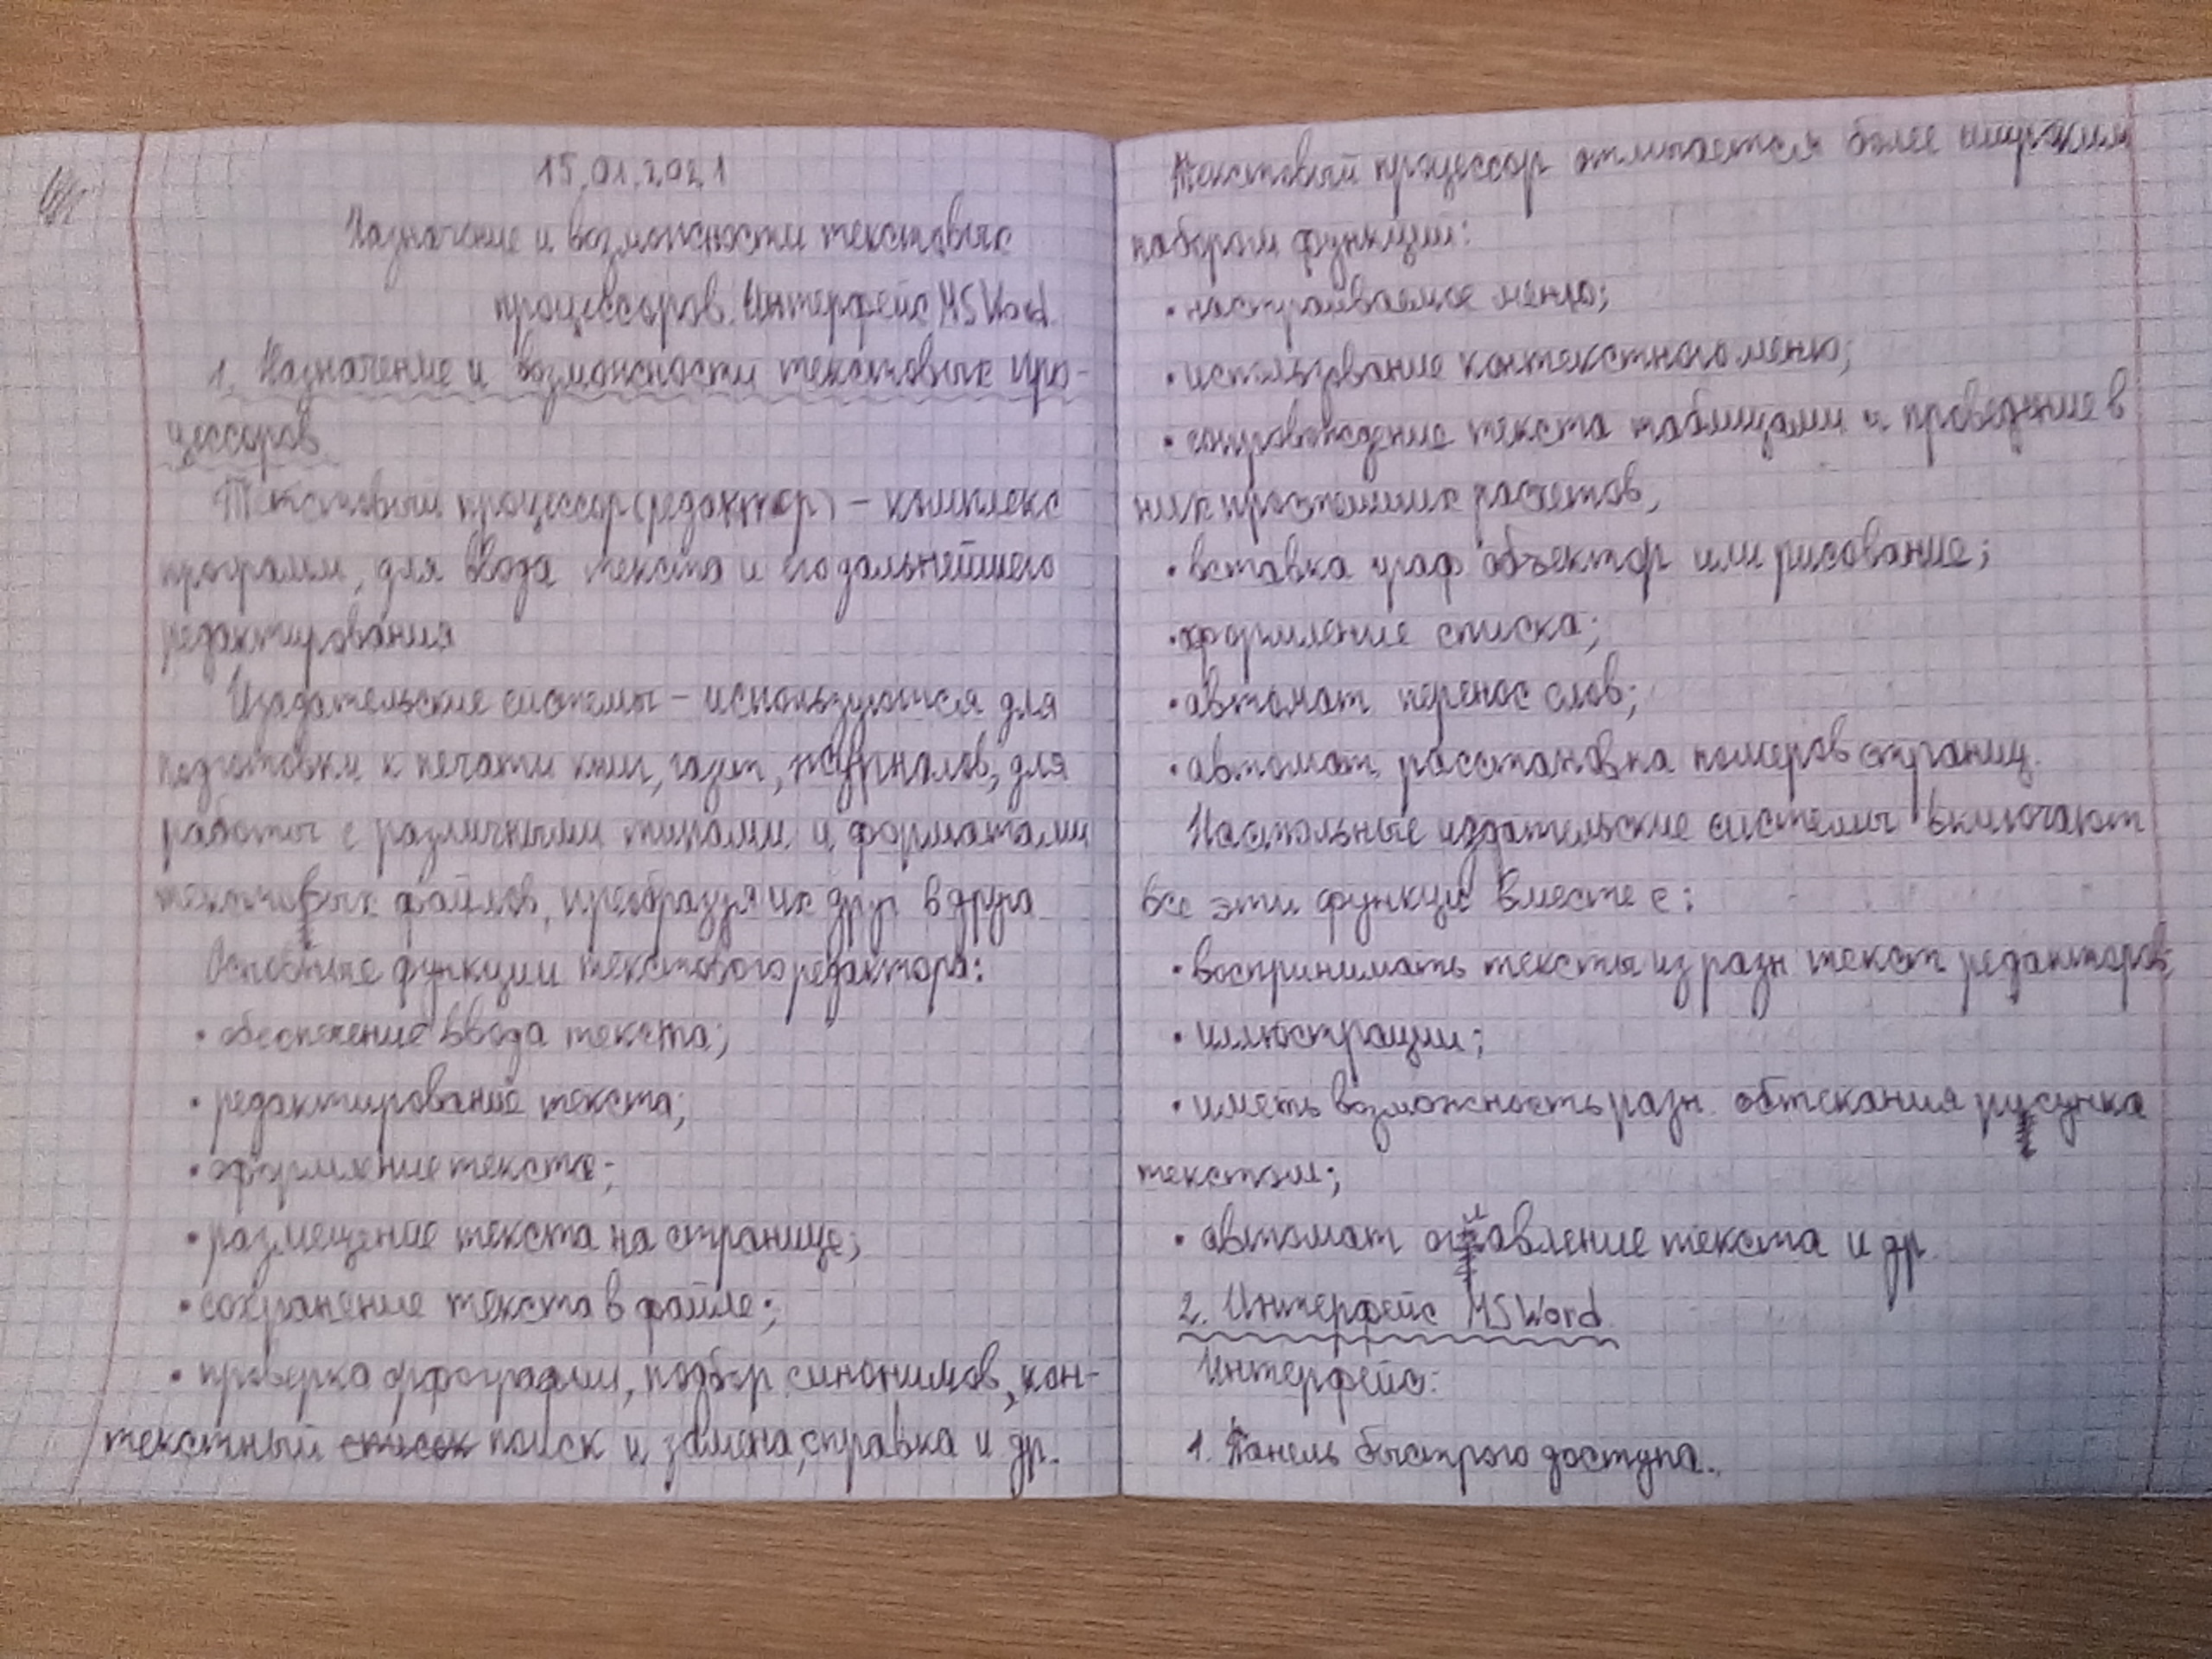 15.01.2021
Назначение и возможности текстовых
процессоров. Интерфейс MS Word.
1. Назначение и возможности текстовых про-
цессоров
Текстовый процессор (редактор) – комплекс
программ, для ввода текста и его дальнейшего
редактирования
Издательские системы – используются для
подготовки к печати книг, газет, журналов, для
работы с различными типами и форматами
текстовых файлов, преобразуя их друг в друга
Основные функции текстового редактора:
• обеспечение ввода текста;
• редактирование текста;
• оформление текста;
• размещение текста на странице;
• сохранение текста в файле;
• проверка орфографии, подбор синонимов, кон-
текстный список поиск и замена, справка и др.
Текстовый процессор отличается более широким
набором функций:
• настраиваемое меню;
• использование контекстного меню;
• сопровождение текста таблицами и проведение в
них простейших расчетов,
• вставка граф объектор или рисование;
• оформление списка;
• автомат перенос слов;
• автомат расстановка номеров страниц.
Настольные издательские системы включают
все эти функции вместе с:
• воспринимать тексты из разн текст редакторов;
• иллюстрации;
• иметь возможность разн. обтекания рисунка
текстом;
• автомат оглавление текста и др.
2. Интерфейс MS Word.
Интерфейс:
1. Панель быстрого доступа.